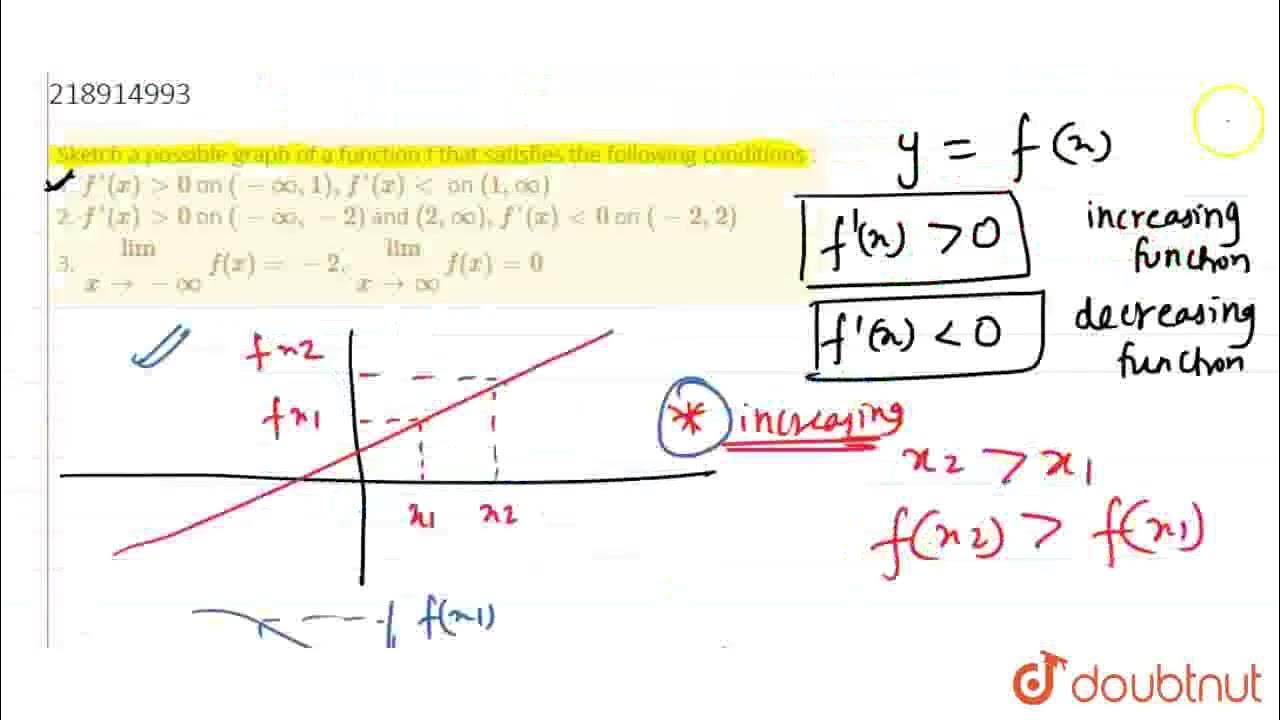 218914993
Sketch a possible graph of a function f that satisfies the following conditions :
1. f'(x) > 0 on (− ∞, 1), f'(x) < on (1, ∞)
2. f"(x) > 0 on (− ∞, − 2) and (2, ∞), f"(x) < 0 on (− 2, 2)
3. lim x → − ∞ f(x) = − 2, lim x → ∞ f(x) = 0
y = f(x)
f'(x) > 0 increasing function
f'(x) < 0 decreasing function
fx2
fx1
x1 x2
* increasing
x2 > x1
f(x2) > f(x1)
f(x1)
doubtnut